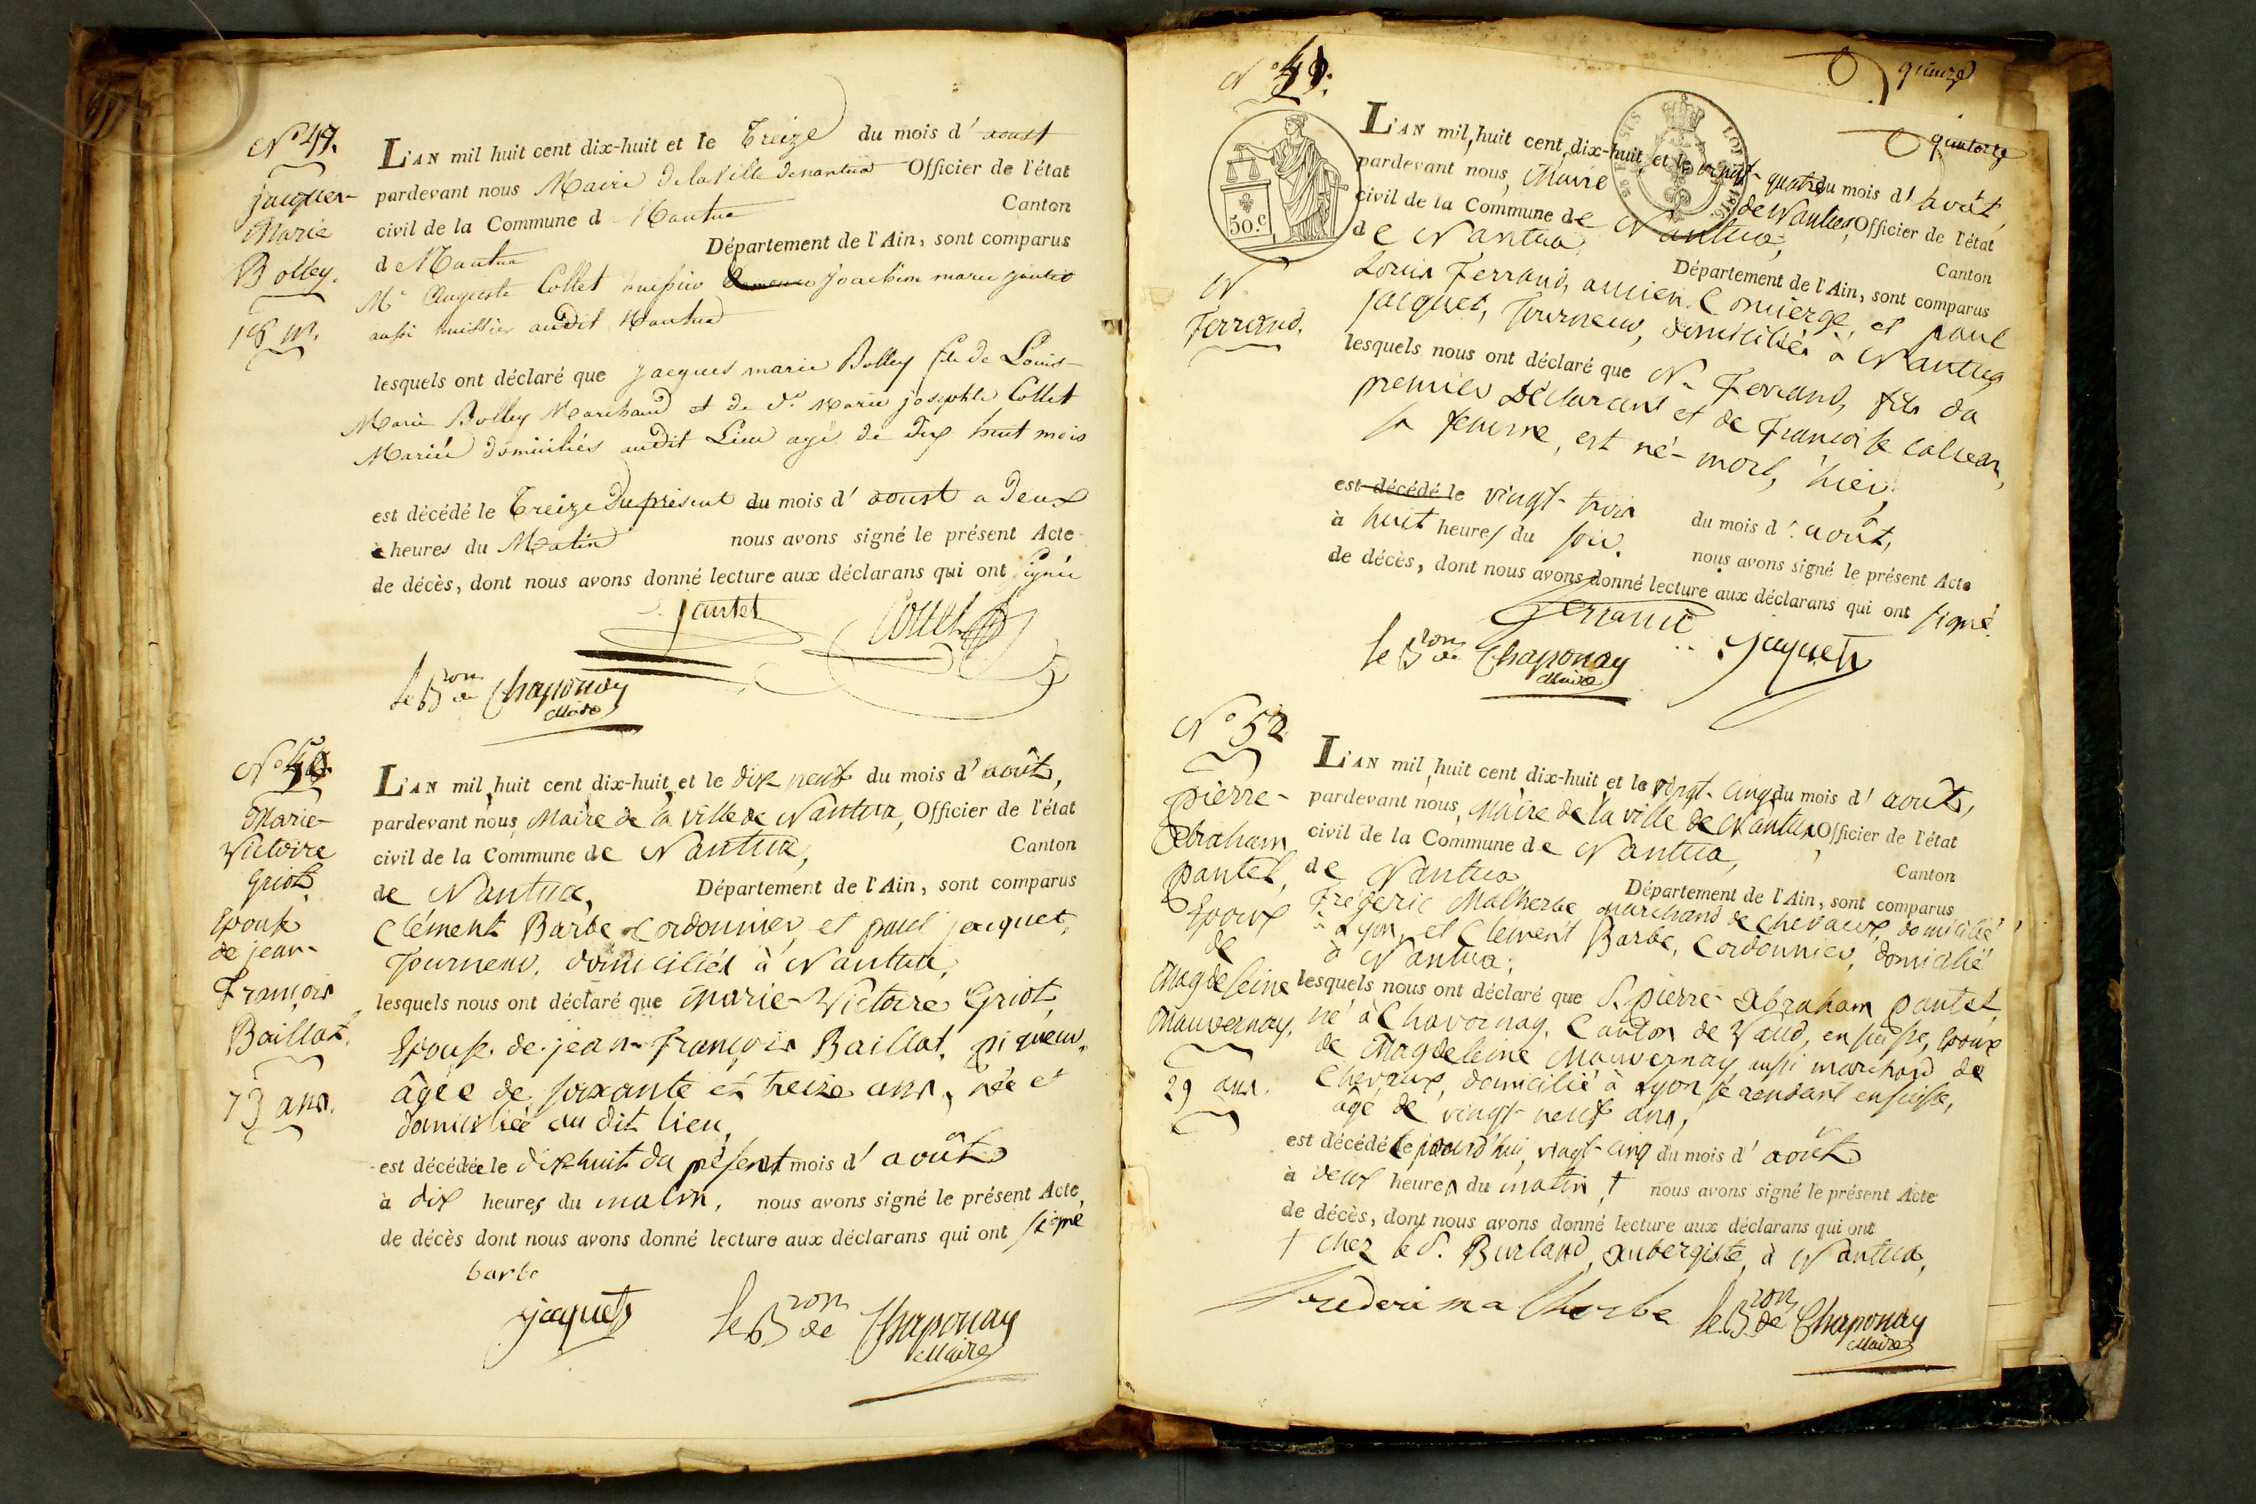 N° 47.
Jacques-
Marie
Bolley.
18 m.
L'AN mil huit cent dix-huit et le Treize du mois d' aoust
pardevant nous Maire de la Ville de nantua Officier de l'état
civil de la Commune d Nantua Canton
de Nantua Département de l'Ain, sont comparus
Mr Auguste Collet huissier Joachim marie Jantet
aussi huissier audit Nantua
lesquels ont déclaré que Jacques marie Bolley fils de Louis-
Marie Bolley Marchand et de de Marie josephte Collet
Mariés domiciliés audit Lieu agé de dix huit mois
est décédé le Treize du présent du mois d' aoust a deux
à heures du Matin nous avons signé le présent Acte
de décès, dont nous avons donné lecture aux déclarans qui ont signé
Jantet Collet
le Bron de Chaponay
Maire
N°
Marie-
Victoire
Griot,
Epouse
de jean-
François
Baillat.
73 ans.
L'AN mil huit cent dix-huit et le dix neuf du mois d' août,
pardevant nous Maire de la ville de Nantua, Officier de l'état
civil de la Commune de Nantua, Canton
de Nantua, Département de l'Ain, sont comparus
Clément Barbe Cordonnier, et paul jacquet,
Tourneur, domiciliés à Nantua,
lesquels nous ont déclaré que Marie-Victoire Griot,
Epouse de jean-François Baillat, piqueur,
âgée de soixante et treize ans, née et
domiciliée au dit lieu,
est décédée le dix huit du présent mois d' août
à dix heures du matin, nous avons signé le présent Acte
de décès dont nous avons donné lecture aux déclarans qui ont signé
barbe
jaquet le Bron de Chaponay
Maire
quinze
quatorze
N°
50.c
N.
Ferrand.
L'AN mil huit cent dix-huit et le vingt-quatre du mois d' août,
pardevant nous, Maire de Nantua, Officier de l'état
civil de la Commune de Nantua, Canton
de Nantua, Département de l'Ain, sont comparus
Louis Ferrand, ancien Concierge, et paul
jacquet, Tourneur, domiciliés à Nantua
lesquels nous ont déclaré que N. Ferrand, fils du
premier Déclarant et de Françoise
sa femme, est né-mort, hier,
est décédé le vingt-trois du mois d' août,
à huit heures du soir. nous avons signé le présent Acte
de décès, dont nous avons donné lecture aux déclarans qui ont signé.
Ferrand
le Bron de Chaponay jaquet
Maire
N° 52
pierre-
Abraham
pantet,
Epoux
de
Magdeleine
Mauvernay.
29 ans.
L'AN mil huit cent dix-huit et le vingt-cinq du mois d' août,
pardevant nous, Maire de la ville de Nantua Officier de l'état
civil de la Commune de Nantua, Canton
de Nantua Département de l'Ain, sont comparus
Fréderic Malherbe, marchand de Chevaux, domicilié
à Lyon, et Clément Barbe, Cordonnier, domicilié
à Nantua;
lesquels nous ont déclaré que S. pierre-Abraham pantet,
né à Chavornay, Canton de Vaud, en suisse, Epoux
de Magdeleine Mauvernay aussi marchand de
Chevaux, domicilié à Lyon se rendant en suisse,
âgé de vingt-neuf ans,
est décédé cejourd'hui, vingt-cinq du mois d' août
à deux heures du matin, † nous avons signé le présent Acte
de décès, dont nous avons donné lecture aux déclarans qui ont
† chez le S. Burland, aubergiste, à Nantua,
frederi malherbe le Bron de Chaponay
Maire